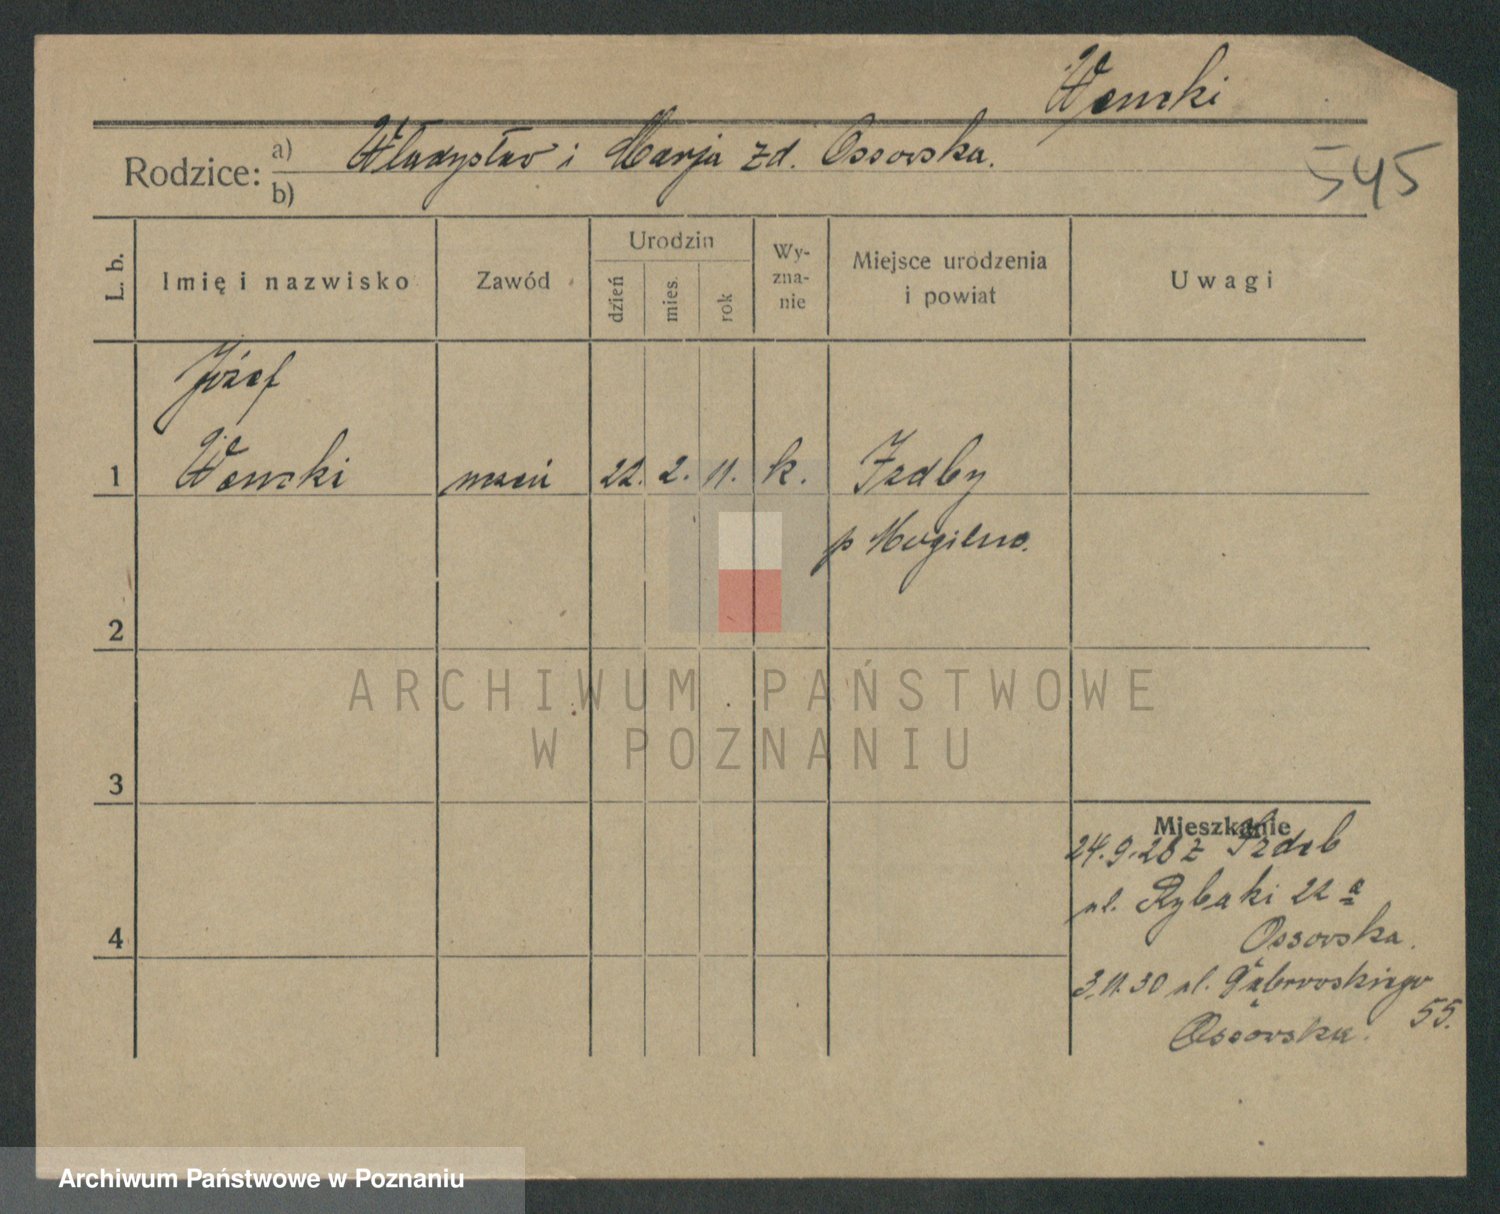 Wenski
Rodzice: a) Władysław i Marja zd. Ossowska.
b)
545
L. b.
Imię i nazwisko
Zawód
Urodzin
dzień
mies.
rok
Wy-
zna-
nie
Miejsce urodzenia
i powiat
Uwagi
Józef
1 Wenski uczeń 22. 2. 11. k. Izdby
p Mogilno.
2
ARCHIWUM PAŃSTWOWE
W POZNANIU
3
Mieszkanie
24.9.28 z Izdeb
ul. Rybaki 22 a
4
Ossowska.
3.11.30 ul. Dąbrowskiego
55.
Ossowska.
Archiwum Państwowe w Poznaniu